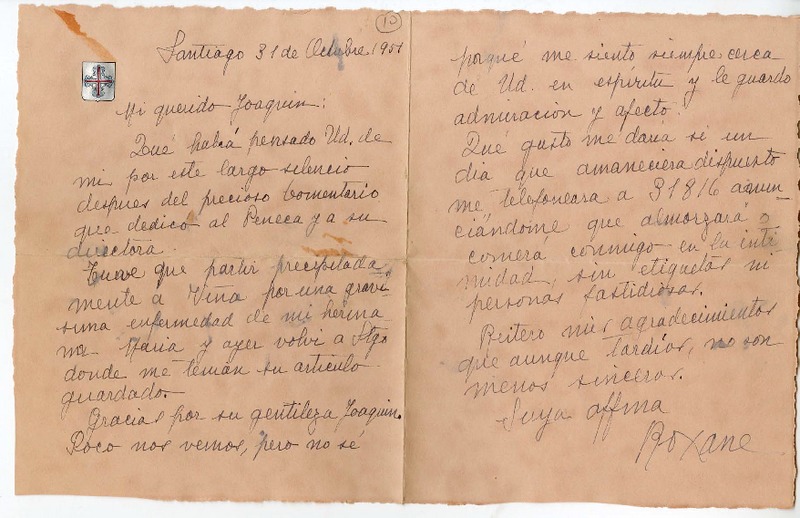 10
Santiago 31 de Octubre 1951
Mi querido Joaquin:
Qué habrá pensado Ud. de
mi por este largo silencio
despues del precioso comentario
que dedicó al Peneca y a su
directora.
Tuve que partir precipitada
mente a Viña por una graví-
sima enfermedad de mi herma
na Maria y ayer volvi a Stgo
donde me tenían su artículo
guardado.
Gracias por su gentileza Joaquin.
Poco nos vemos, pero no sé
porqué me siento siempre cerca
de Ud. en espíritu y le guardo
admiración y afecto.
Qué gusto me daría si un
día que amaneciera dispuesto
me telefoneara a 31816 anun-
ciándome que almorzará o
comerá conmigo en la inti
midad, sin etiquetas ni
personas fastidiosas.
Reitero mis agradecimientos
que aunque tardíos, no son
menos sinceros.
Suya affma
Roxane